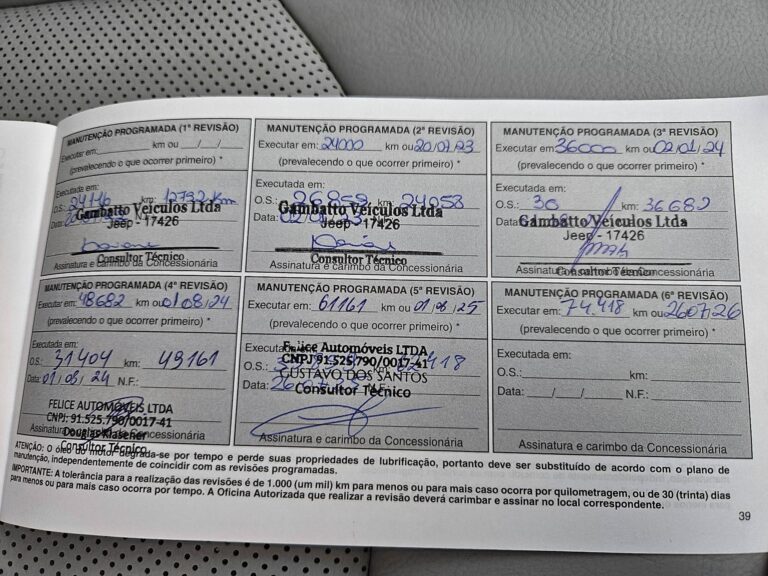 MANUTENÇÃO PROGRAMADA (1ª REVISÃO)
Executar em: km ou __/__/__
(prevalecendo o que ocorrer primeiro) *
Executada em:
O.S.: 24146 km: 12792 Km
Data:
Gambatto Veículos Ltda
Jeep - 17426
Consultor Técnico
Assinatura e carimbo da Concessionária
MANUTENÇÃO PROGRAMADA (2ª REVISÃO)
Executar em: 24000 km ou 20/07/23
(prevalecendo o que ocorrer primeiro) *
Executada em:
O.S.: 26859 km: 24058
Data:
Gambatto Veículos Ltda
Jeep - 17426
Consultor Técnico
Assinatura e carimbo da Concessionária
MANUTENÇÃO PROGRAMADA (3ª REVISÃO)
Executar em: 36000 km ou 02/01/24
(prevalecendo o que ocorrer primeiro) *
Executada em:
O.S.: 30 km: 36682
Data:
Gambatto Veículos Ltda
Jeep - 17426
Consultor Técnico
Assinatura e carimbo da Concessionária
MANUTENÇÃO PROGRAMADA (4ª REVISÃO)
Executar em: 48682 km ou 01/08/24
(prevalecendo o que ocorrer primeiro) *
Executada em:
O.S.: 31404 km: 49161
Data: 01/08/24 N.F.:
FELICE AUTOMOVEIS LTDA
CNPJ: 91.525.790/0017-41
Douglas Klasener
Consultor Técnico
Assinatura e carimbo da Concessionária
MANUTENÇÃO PROGRAMADA (5ª REVISÃO)
Executar em: 61161 km ou 01/08/25
(prevalecendo o que ocorrer primeiro) *
Executada em:
Felice Automóveis LTDA
CNPJ 91.525.790/0017-41
O.S.: km: 62418
GUSTAVO DOS SANTOS
Data: N.F.:
Consultor Técnico
Assinatura e carimbo da Concessionária
MANUTENÇÃO PROGRAMADA (6ª REVISÃO)
Executar em: 74.418 km ou 26/07/26
(prevalecendo o que ocorrer primeiro) *
Executada em:
O.S.: km:
Data: __/__/__ N.F.:
Assinatura e carimbo da Concessionária
ATENÇÃO: O óleo do motor degrada-se por tempo e perde suas propriedades de lubrificação, portanto deve ser substituído de acordo com o plano de
manutenção, independentemente de coincidir com as revisões programadas.
IMPORTANTE: A tolerância para a realização das revisões é de 1.000 (um mil) km para menos ou para mais caso ocorra por quilometragem, ou de 30 (trinta) dias
para menos ou para mais caso ocorra por tempo. A Oficina Autorizada que realizar a revisão deverá carimbar e assinar no local correspondente.
39